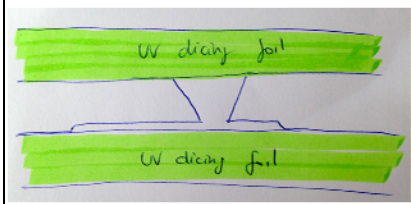 UV dicing foil
UV dicing foil